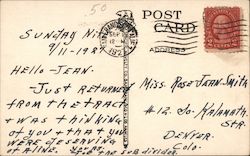 50
POST
CARD
ADDRESS
Sunday Nite
9/11-1927
Hello-Jean.
Just returned
from the tract
& was thinking
of you & that you
were deserving
of a line.
Miss. Rose Jean Smith
#12. So. Kalamath
Str.
Denver.
Colo.